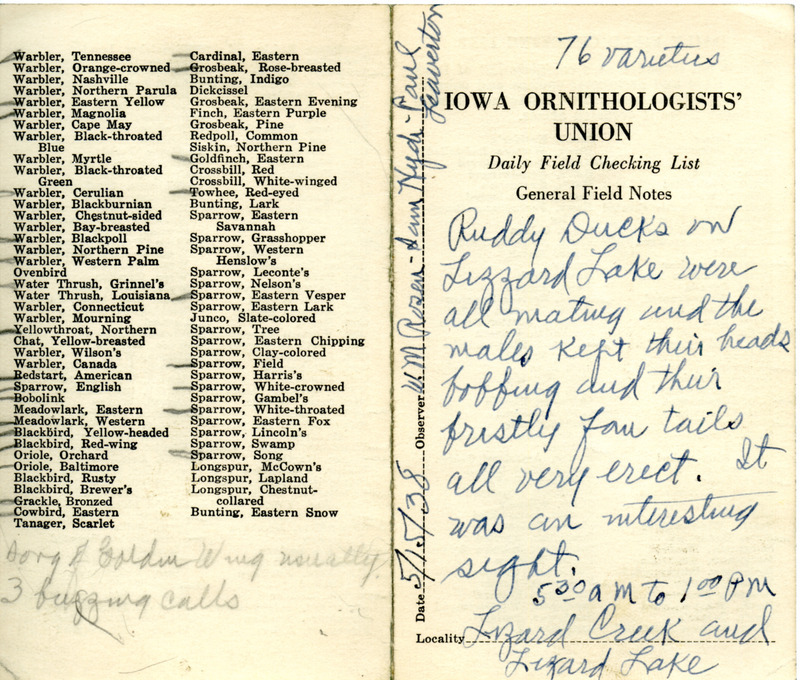 Warbler, Tennessee
Warbler, Orange-crowned
Warbler, Nashville
Warbler, Northern Parula
Warbler, Eastern Yellow
Warbler, Magnolia
Warbler, Cape May
Warbler, Black-throated
Blue
Warbler, Myrtle
Warbler, Black-throated
Green
Warbler, Cerulian
Warbler, Blackburnian
Warbler, Chestnut-sided
Warbler, Bay-breasted
Warbler, Blackpoll
Warbler, Northern Pine
Warbler, Western Palm
Ovenbird
Water Thrush, Grinnel's
Water Thrush, Louisiana
Warbler, Connecticut
Warbler, Mourning
Yellowthroat, Northern
Chat, Yellow-breasted
Warbler, Wilson's
Warbler, Canada
Redstart, American
Sparrow, English
Bobolink
Meadowlark, Eastern
Meadowlark, Western
Blackbird, Yellow-headed
Blackbird, Red-wing
Oriole, Orchard
Oriole, Baltimore
Blackbird, Rusty
Blackbird, Brewer's
Grackle, Bronzed
Cowbird, Eastern
Tanager, Scarlet
Cardinal, Eastern
Grosbeak, Rose-breasted
Bunting, Indigo
Dickcissel
Grosbeak, Eastern Evening
Finch, Eastern Purple
Grosbeak, Pine
Redpoll, Common
Siskin, Northern Pine
Goldfinch, Eastern
Crossbill, Red
Crossbill, White-winged
Towhee, Red-eyed
Bunting, Lark
Sparrow, Eastern
Savannah
Sparrow, Grasshopper
Sparrow, Western
Henslow's
Sparrow, Leconte's
Sparrow, Nelson's
Sparrow, Eastern Vesper
Sparrow, Eastern Lark
Junco, Slate-colored
Sparrow, Tree
Sparrow, Eastern Chipping
Sparrow, Clay-colored
Sparrow, Field
Sparrow, Harris's
Sparrow, White-crowned
Sparrow, Gambel's
Sparrow, White-throated
Sparrow, Eastern Fox
Sparrow, Lincoln's
Sparrow, Swamp
Sparrow, Song
Longspur, McCown's
Longspur, Lapland
Longspur, Chestnut-
collared
Bunting, Eastern Snow
Song of Golden Wing usually
3 buzzing calls
Date 5/15/38 Observer W M Rosen - Sam Hyde - Paul
Leaverton
76 varieties
IOWA ORNITHOLOGISTS'
UNION
Daily Field Checking List
General Field Notes
Ruddy Ducks on
Lizzard Lake were
all mating and the
males kept their heads
bobbing and their
bristly fan tails
all very erect. It
was an interesting
sight.
5 30 a m to 1 00 P m
Locality Lizard Creek and
Lizard Lake